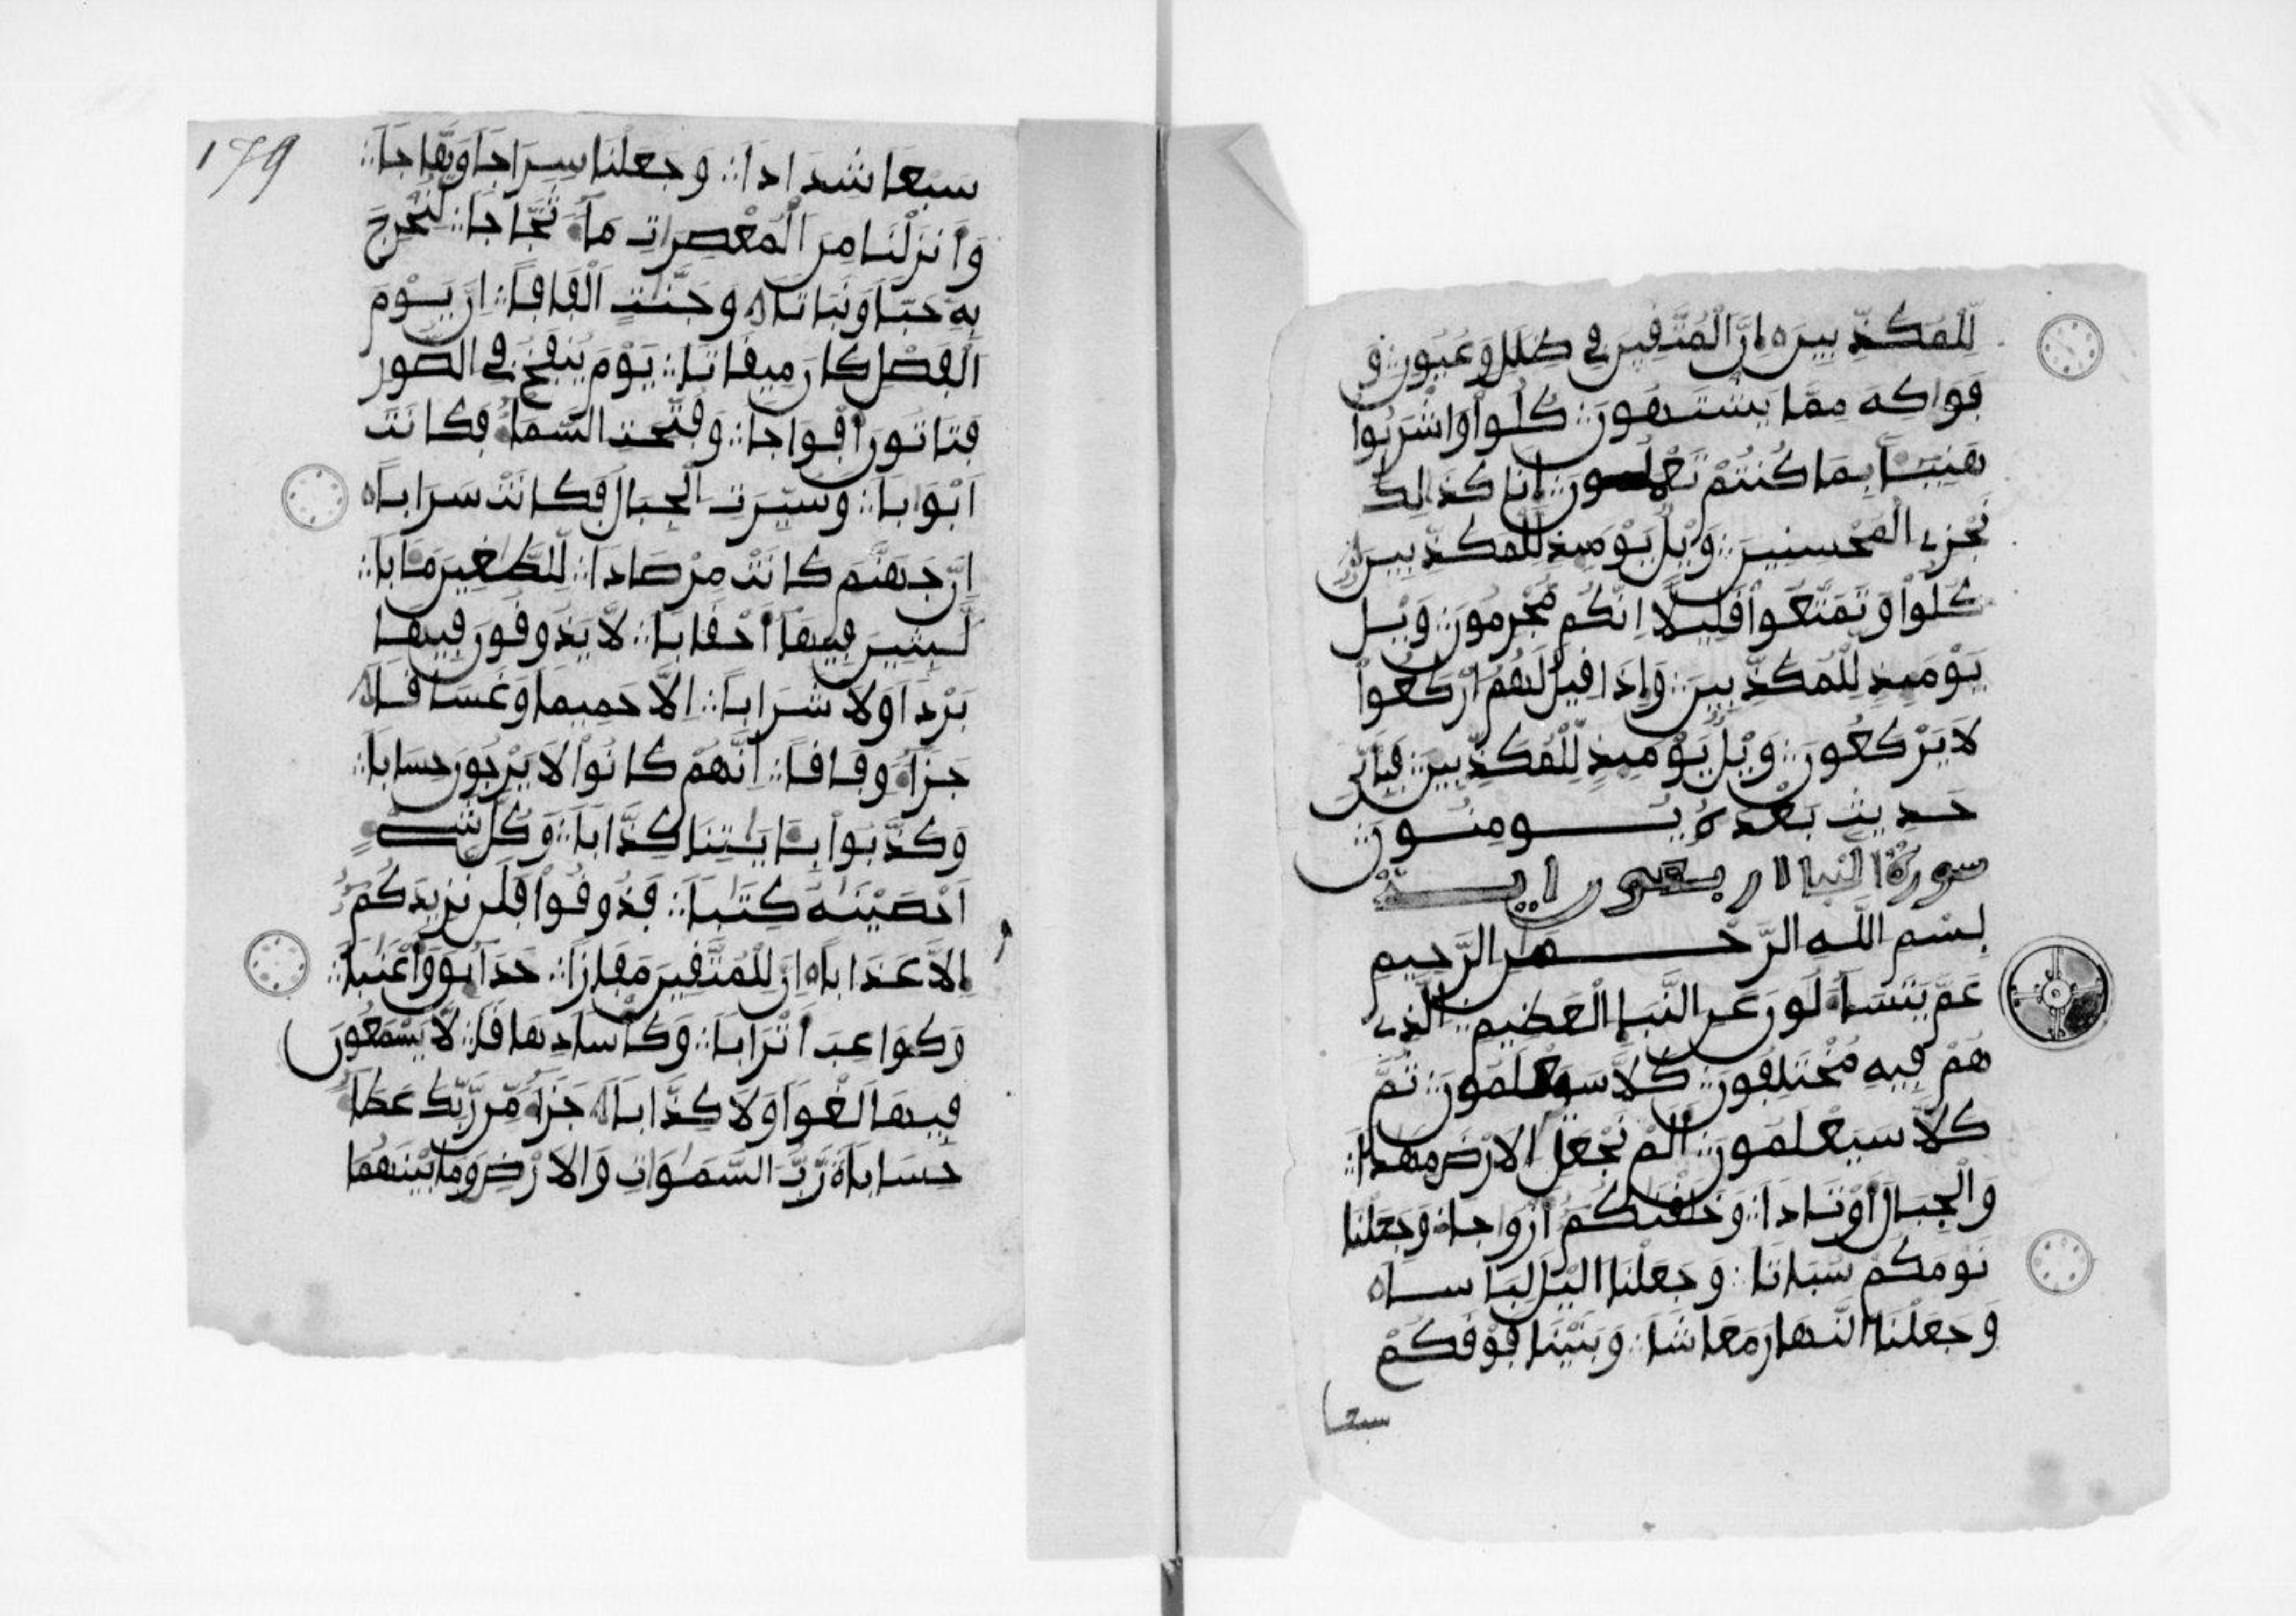 لِّلْمُكَذِّبِينَ اِنَّ الْمُتَّقِينَ فِي ظِلَلٍ وَعُيُونٍ وَ
فَوَاكِهَ مِمَّا يَشْتَهُونَ كُلُواْ وَاشْرَبُواْ
هَنِيـًٔا بِمَا كُنتُمْ تَعْمَلُونَ اِنَّا كَذَالِكَ
نَجْزِے الْمُحْسِنِينَ وَيْلٌ يَوْمَئِذٍ لِّلْمُكَذِّبِينَ
كُلُواْ وَتَمَتَّعُواْ قَلِيلًا اِنَّكُم مُّجْرِمُونَ وَيْلٌ
يَوْمَئِذٍ لِّلْمُكَذِّبِينَ وَإِذَا قِيلَ لَهُمُ ارْكَعُواْ
لَا يَرْكَعُونَ وَيْلٌ يَوْمَئِذٍ لِّلْمُكَذِّبِينَ فَبِأَيِّ
حَدِيثٍ بَعْدَهُ يُومِنُونَ
سورة النبا اربعون اية
بِسْمِ اللَّهِ الرَّحْمَنِ الرَّحِيمِ
عَمَّ يَتَسَآءَلُونَ عَنِ النَّبَإِ الْعَظِيمِ الَّذِے
هُمْ فِيهِ مُخْتَلِفُونَ كَلَّا سَيَعْلَمُونَ ثُمَّ
كَلَّا سَيَعْلَمُونَ أَلَمْ نَجْعَلِ الْأَرْضَ مِهَدًا
وَالْجِبَالَ أَوْتَادًا وَخَلَقْنَكُمُ أَزْوَاجًا وَجَعَلْنَا
نَوْمَكُمْ سُبَاتًا وَجَعَلْنَا الَّيْلَ لِبَاسًا
وَجَعَلْنَا النَّهَارَ مَعَاشًا وَبَنَيْنَا فَوْقَكُمْ
سبعا
179
سَبْعًا شِدَادًا وَجَعَلْنَا سِرَاجًا وَهَّاجًا
وَأَنزَلْنَا مِنَ الْمُعْصِرَاتِ مَآءً ثَجَّاجًا لِّنُخْرِجَ
بِهِ حَبًّا وَنَبَاتًا وَجَنَّتٍ اَلْفَافًا اِنَّ يَوْمَ
الْفَصْلِ كَانَ مِيقَاتًا يَوْمَ يُنفَخُ فِي الصُّورِ
فَتَاتُونَ أَفْوَاجًا وَفُتِّحَتِ السَّمَآءُ فَكَانَتَ
اَبْوَابًا وَسُيِّرَتِ الْجِبَالُ فَكَانَتْ سَرَابًا
اِنَّ جَهَنَّمَ كَانَتْ مِرْصَادًا لِّلطَّغِينَ مَـَٔابًا
لَّبِثِينَ فِيهَآ أَحْقَابًا لَّا يَذُوقُونَ فِيهَا
بَرْدًا وَلَا شَرَابًا اِلَّا حَمِيمًا وَغَسَاقًا
جَزَآءً وِفَاقًا اِنَّهُمْ كَانُواْ لَا يَرْجُونَ حِسَابًا
وَكَذَّبُواْ بِـَٔايَتِنَا كِذَّابًا وَكُلَّ شَيْءٍ
اَحْصَيْنَهُ كِتَبًا فَذُوقُواْ فَلَن نَّزِيدَكُمُ
إِلَّا عَذَابًا اِنَّ لِلْمُتَّقِينَ مَفَازًا حَدَآئِقَ وَأَعْنَبًا
وَكَوَاعِبَ أَتْرَابًا وَكَأْسًا دِهَاقًا لَّا يَسْمَعُونَ
فِيهَا لَغْوًا وَلَا كِذَّابًا جَزَآءً مِّن رَّبِّكَ عَطَآءً
حِسَابًا رَّبُّ السَّمَوَاتِ وَالْأَرْضِ وَمَا بَيْنَهُمَا